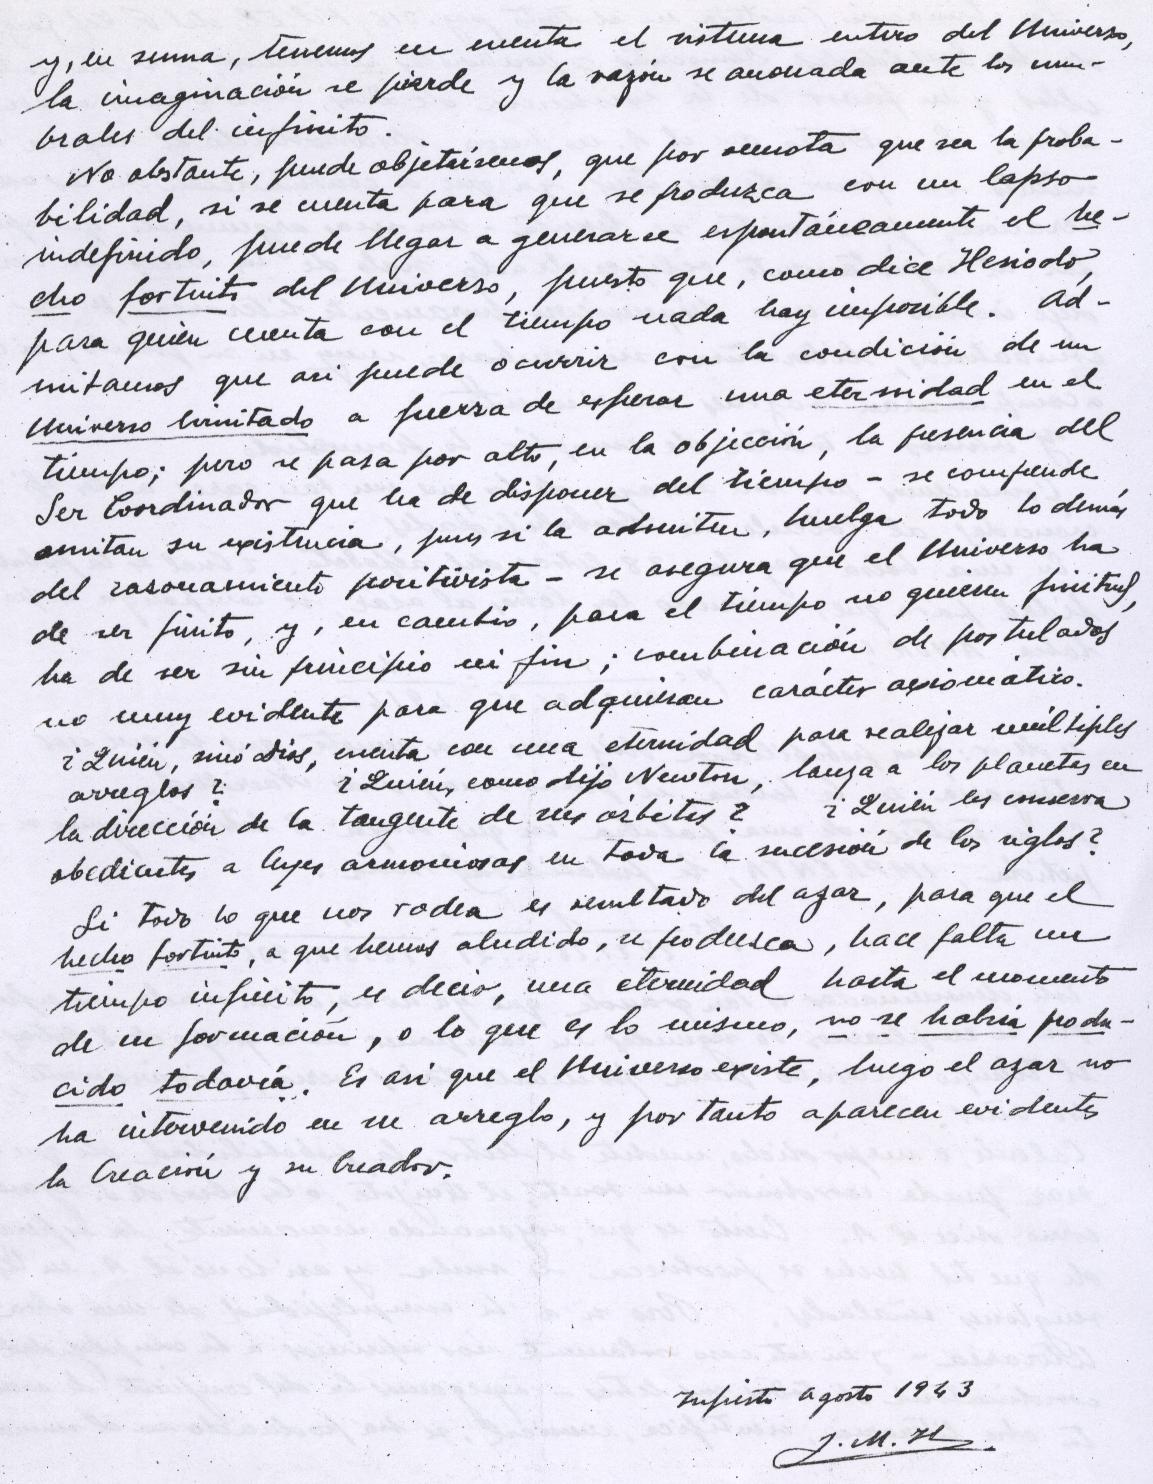 y, en suma, tenemos en cuenta el sistema entero del Universo,
la imaginación se pierde y la razón se anonada ante los um-
brales del infinito.
No obstante, puede objetársenos, que por remota que sea la proba-
bilidad, si se cuenta para que se produzca con un lapso
indefinido, puede llegar a generarse espontáneamente el he-
cho fortuito del Universo, puesto que, como dice Hesiodo,
para quien cuenta con el tiempo nada hay imposible. Ad-
mitamos que asi puede ocurrir con la condición de un
Universo limitado a fuerza de esperar una eternidad en el
tiempo; pero se pasa por alto, en la objección, la presencia del
Ser Coordinador que ha de disponer del tiempo - se comprende
omitan su existencia, pues si la admiten, huelga todo lo demás
del razonamiento positivista - se asegura que el Universo ha
de ser finito, y, en cambio, para el tiempo no quieren finitud,
ha de ser sin principio ni fin; combinación de postulados
no muy evidente para que adquieran carácter axiomático.
¿Quién, sinó Dios, cuenta con una eternidad para realizar múltiples
arreglos? ¿Quién, como dijo Newton, lanza a los planetas en
la dirección de la tangente de sus órbitas? ¿Quién les conserva
obedientes a leyes armoniosas en toda la sucesión de los siglos?
Si todo lo que nos rodea es resultado del azar, para que el
hecho fortuito, a que hemos aludido, se produzca, hace falta un
tiempo infinito, es decir, una eternidad hasta el momento
de su formación, o lo que es lo mismo, no se habría produ-
cido todavía. Es asi que el Universo existe, luego el azar no
ha intervenido en su arreglo, y por tanto aparecen evidentes
la Creación y su Creador.
Infiesto agosto 1943
J. M. H.